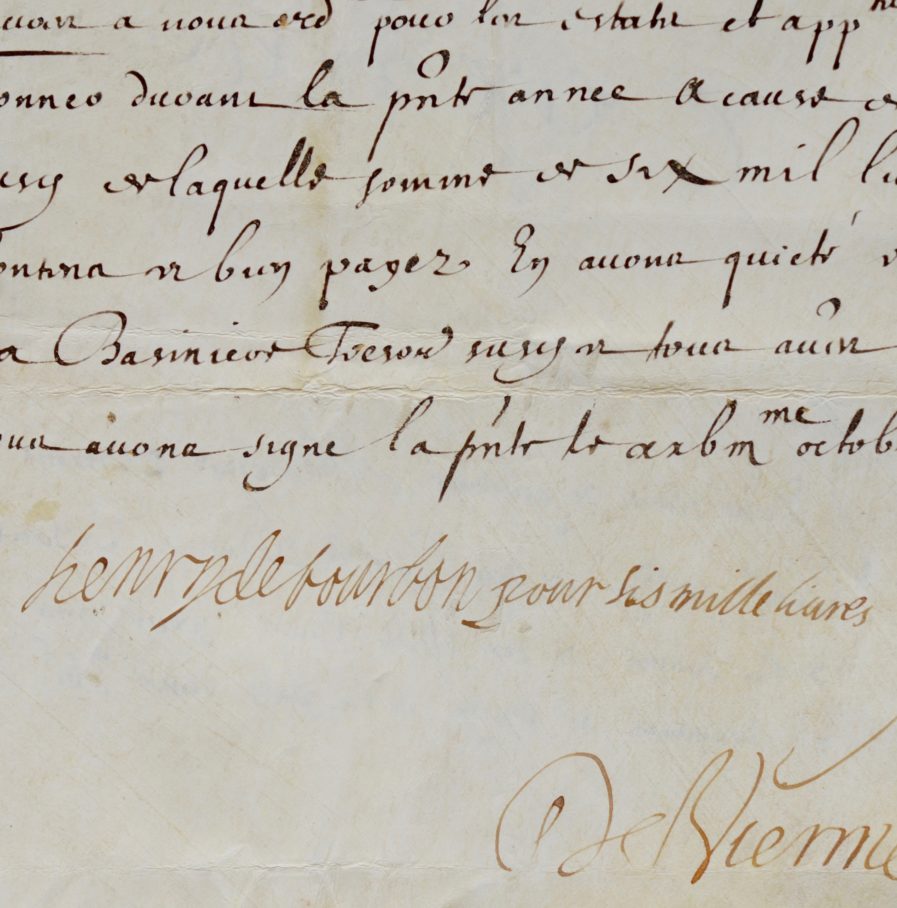 a nous ord pour les estatz et app
onnes durant la pnte annee A cause de
susd de laquelle somme de six mil li
contens et bien payez En avons quicté
la Basiniere Tresor susd et tous aues
avons signe la pnte le octob
henry de bourbon pour sis mille liures
De Vienne